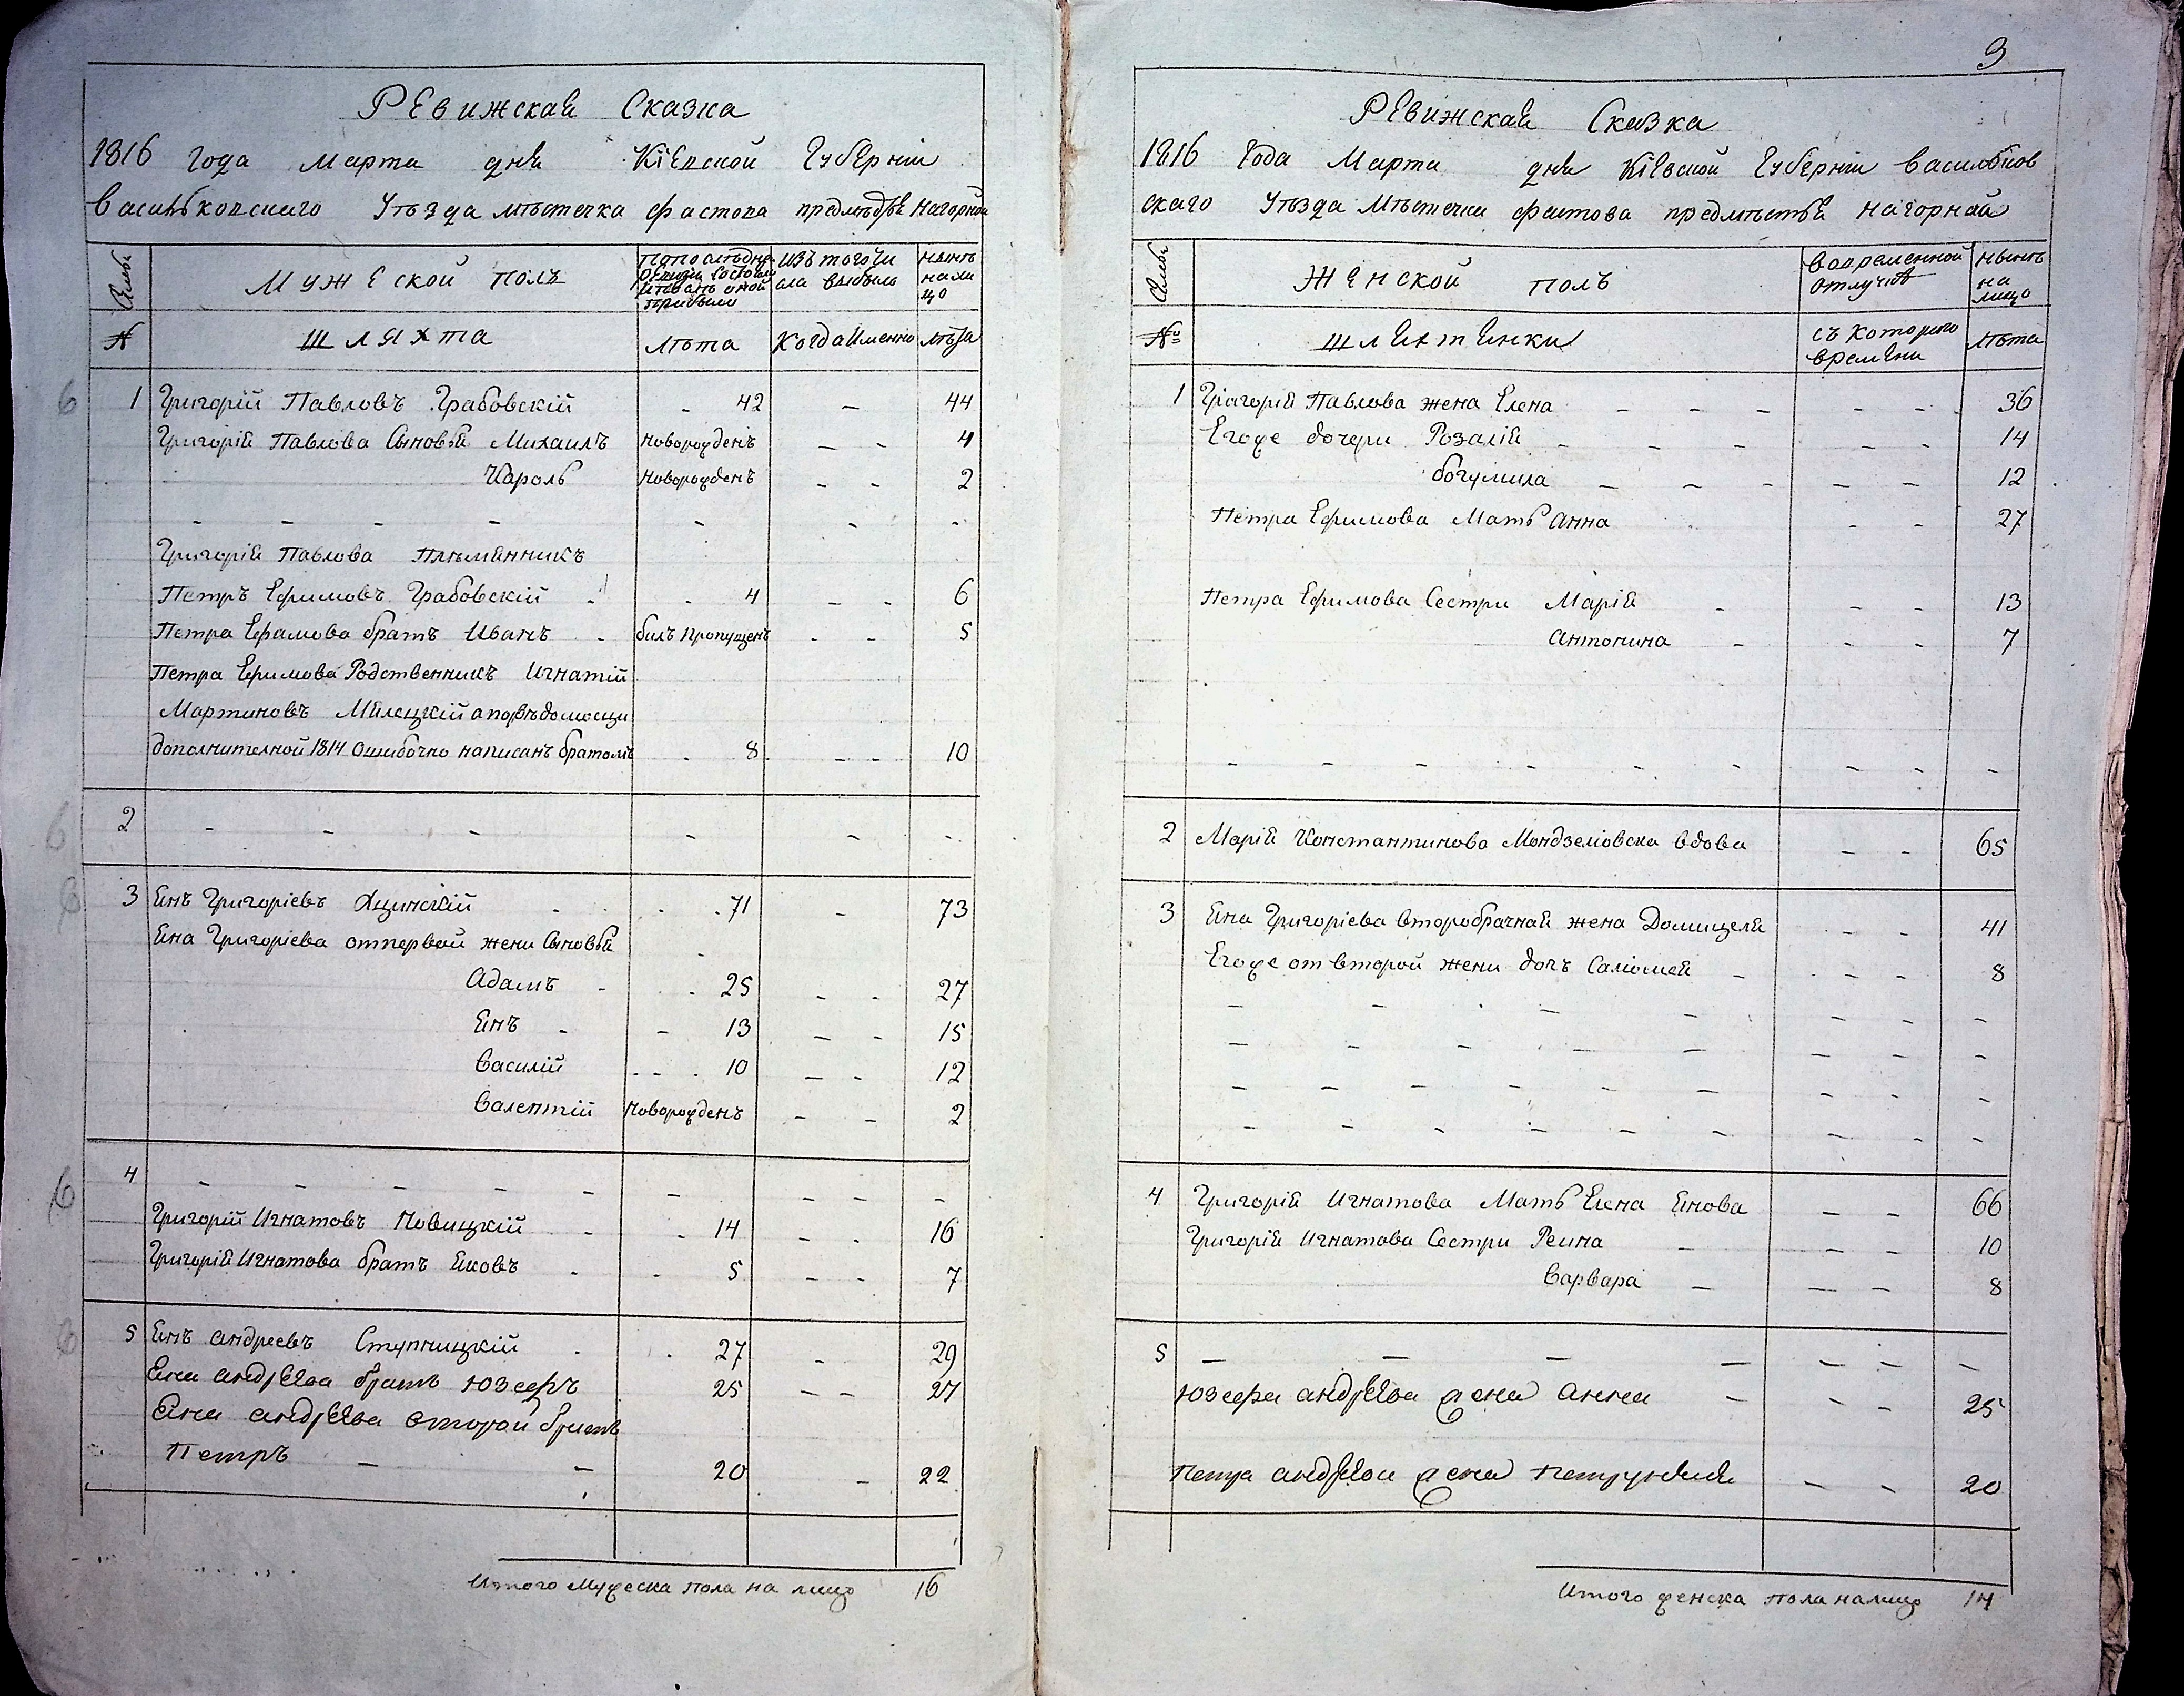 Ревижская Сказка
1816 года Марта дня Кіевской Губерніи
Васильковскаго Уѣзда мѣстечка Фастова предмѣстья Нагорная
Семьи
Мужеской полъ
По последней ревизіи состояло и после оной прибыло
Изъ того числа выбыло
Нынѣ на лицо
№
Шляхта
Лѣта
Когда Именно
Лѣта
1 Григорій Павловъ Грабовскій - 42 - 44
Григорія Павлова Сыновья Михаилъ Новорожденъ - - 4
Кароль Новорожденъ - - 2
- - - - - - -
Григорія Павлова Племянникъ
Петръ Ефимовъ Грабовскій - - 4 - - 6
Петра Ефимова братъ Иванъ - билъ пропущенъ - - 5
Петра Ефимова Родственникъ Игнатій
Мартиновъ Милецкій а по вѣдомосци
дополнителной 1814 Ошибочно написанъ братомъ - 8 - - 10
2 - - - - - -
3 Янъ Григоріевъ Яцинскій - - 71 - 73
Яна Григоріева отпервой жени Сыновья
Адамъ - - 25 - - 27
Янъ - - 13 - - 15
Василій - - - 10 - - 12
Валентій Новорожденъ - - 2
4 - - - - - - - - -
Григорій Игнатовъ Новицкій - - 14 - - 16
Григорія Игнатова братъ Яковъ - - 5 - - 7
5 Янъ Андреевъ Ступницкій - - 27 - 29
Яна Андреева братъ Юзефъ 25 - - 27
Яна Андреева второй братъ
Петръ - - 20 - 22
Итого Мужеска пола на лицо 16
9
Ревижская Сказка
1816 года Марта дня Кіевской Губерніи Васильков
скаго Уѣзда Мѣстечка Фастова предмѣстья Нагорная
Семьи
Женской полъ
Во временной отлучкѣ
Нынѣ на лицо
№
Шляхтянки
Съ котораго времени
Лѣта
1 Григорія Павлова жена Елена - - - - - 36
Егоже дочери Розалія - - - - - 14
Богумила - - - - - 12
Петра Ефимова Мать Анна - - 27
Петра Ефимова Сестри Марія - - - 13
Антонина - - - 7
- - - - - - - - -
2 Марія Константинова Мондзелювска вдова - - 65
3 Яна Григоріева второбрачная жена Домицеля - - 41
Егоже от второй жени дочъ Саломея - - - 8
- - - - - - -
- - - - - - - -
- - - - - - - - -
- - - - - - - - -
4 Григорія Игнатова Мать Елена Янова - - 66
Григорія Игнатова Сестри Реина - - - 10
Варвара - - - 8
5 - - - - - - -
Юзефа Андреева жена Анна - - - 25
Петра Андреева жена Петрунеля - - 20
Итого женска пола на лицо 14